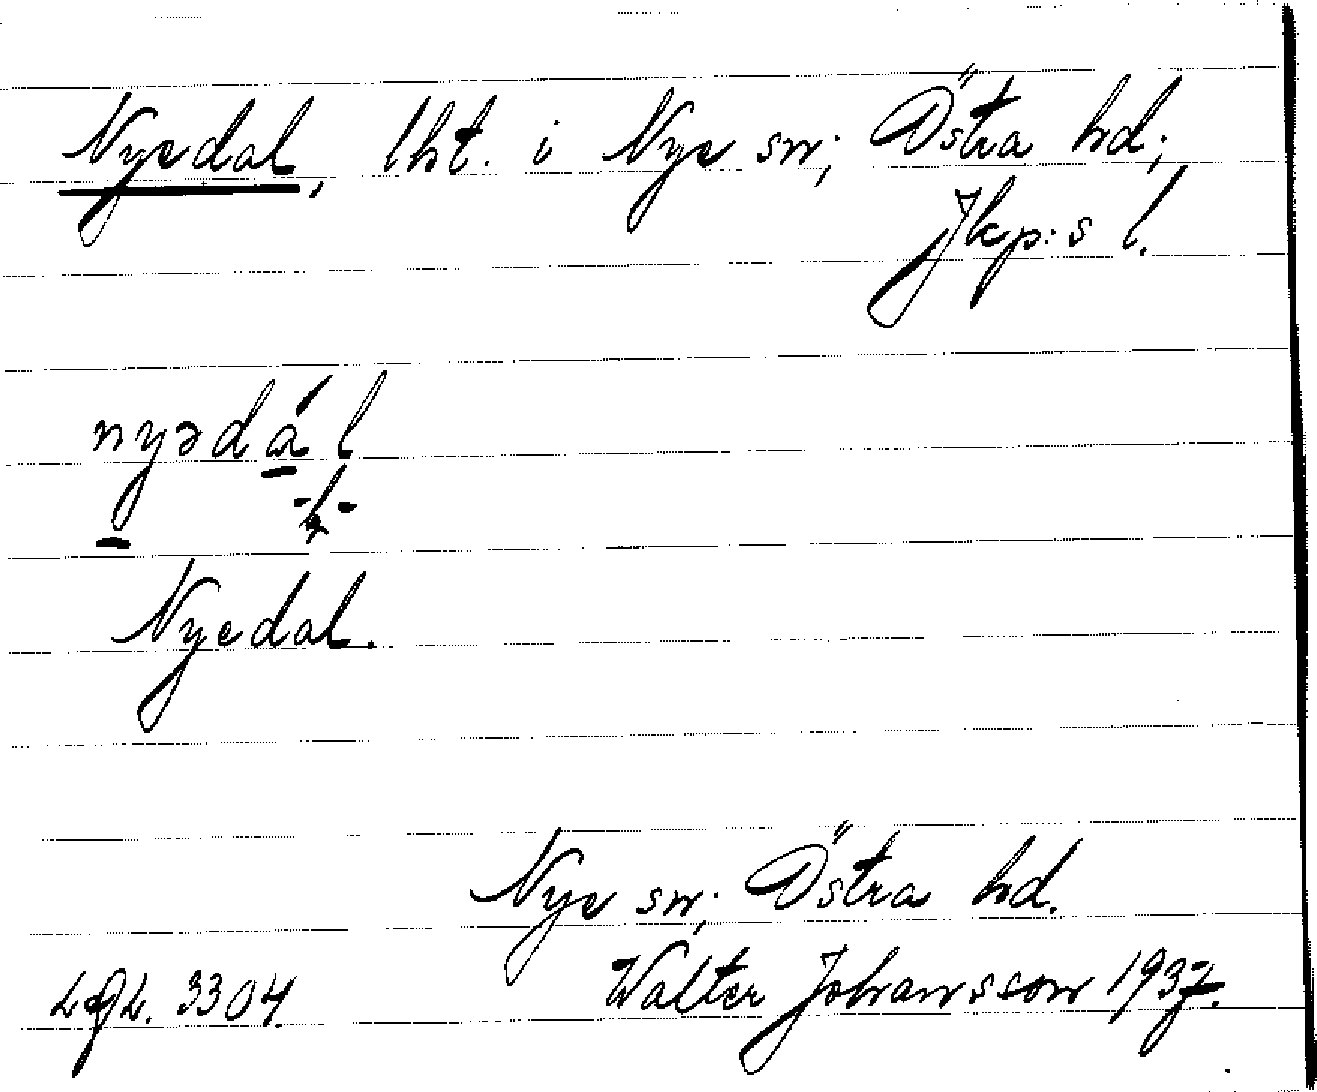 Nyedal, lht. i Nye sn; Östra hd;
Jkp:s l.
nyədál
Nyedal.
Nye sn; Östra hd.
Walter Johansson 1937.
3304.